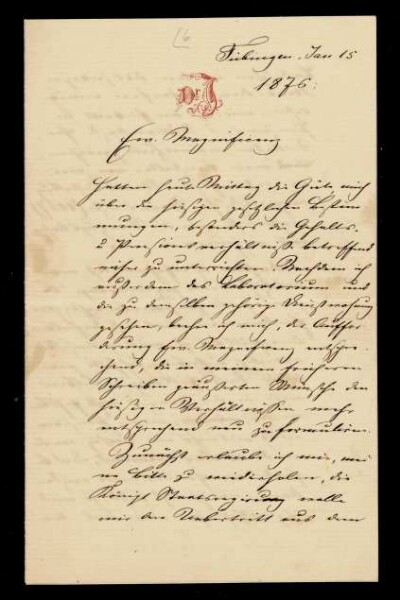 16
Tübingen, Jan 15
1876.
Dr J
Ew. Magnificenz
hatten heute Mittag die Güte mich
über die hiesigen gesetzlichen Bestim
mungen, besonders die Gehalts-
u Pensionsverhältnisse betreffend
näher zu unterrichten. Nachdem ich
außerdem das Laboratorium und
die zu demselben gehörige Dienstwohnung
gesehen, beehre ich mich, der Auffor
derung Ew. Magnificenz entspre-
chend, die in meinem früheren
Schreiben geäußerten Wünsche den
hiesigen Verhältnissen mehr
entsprechend neu zu formuliren.
Zunächst erlaube ich mir, mei
ne Bitte zu wiederholen, die
Königl Staatsregierung wolle
mir den Uebertritt aus dem